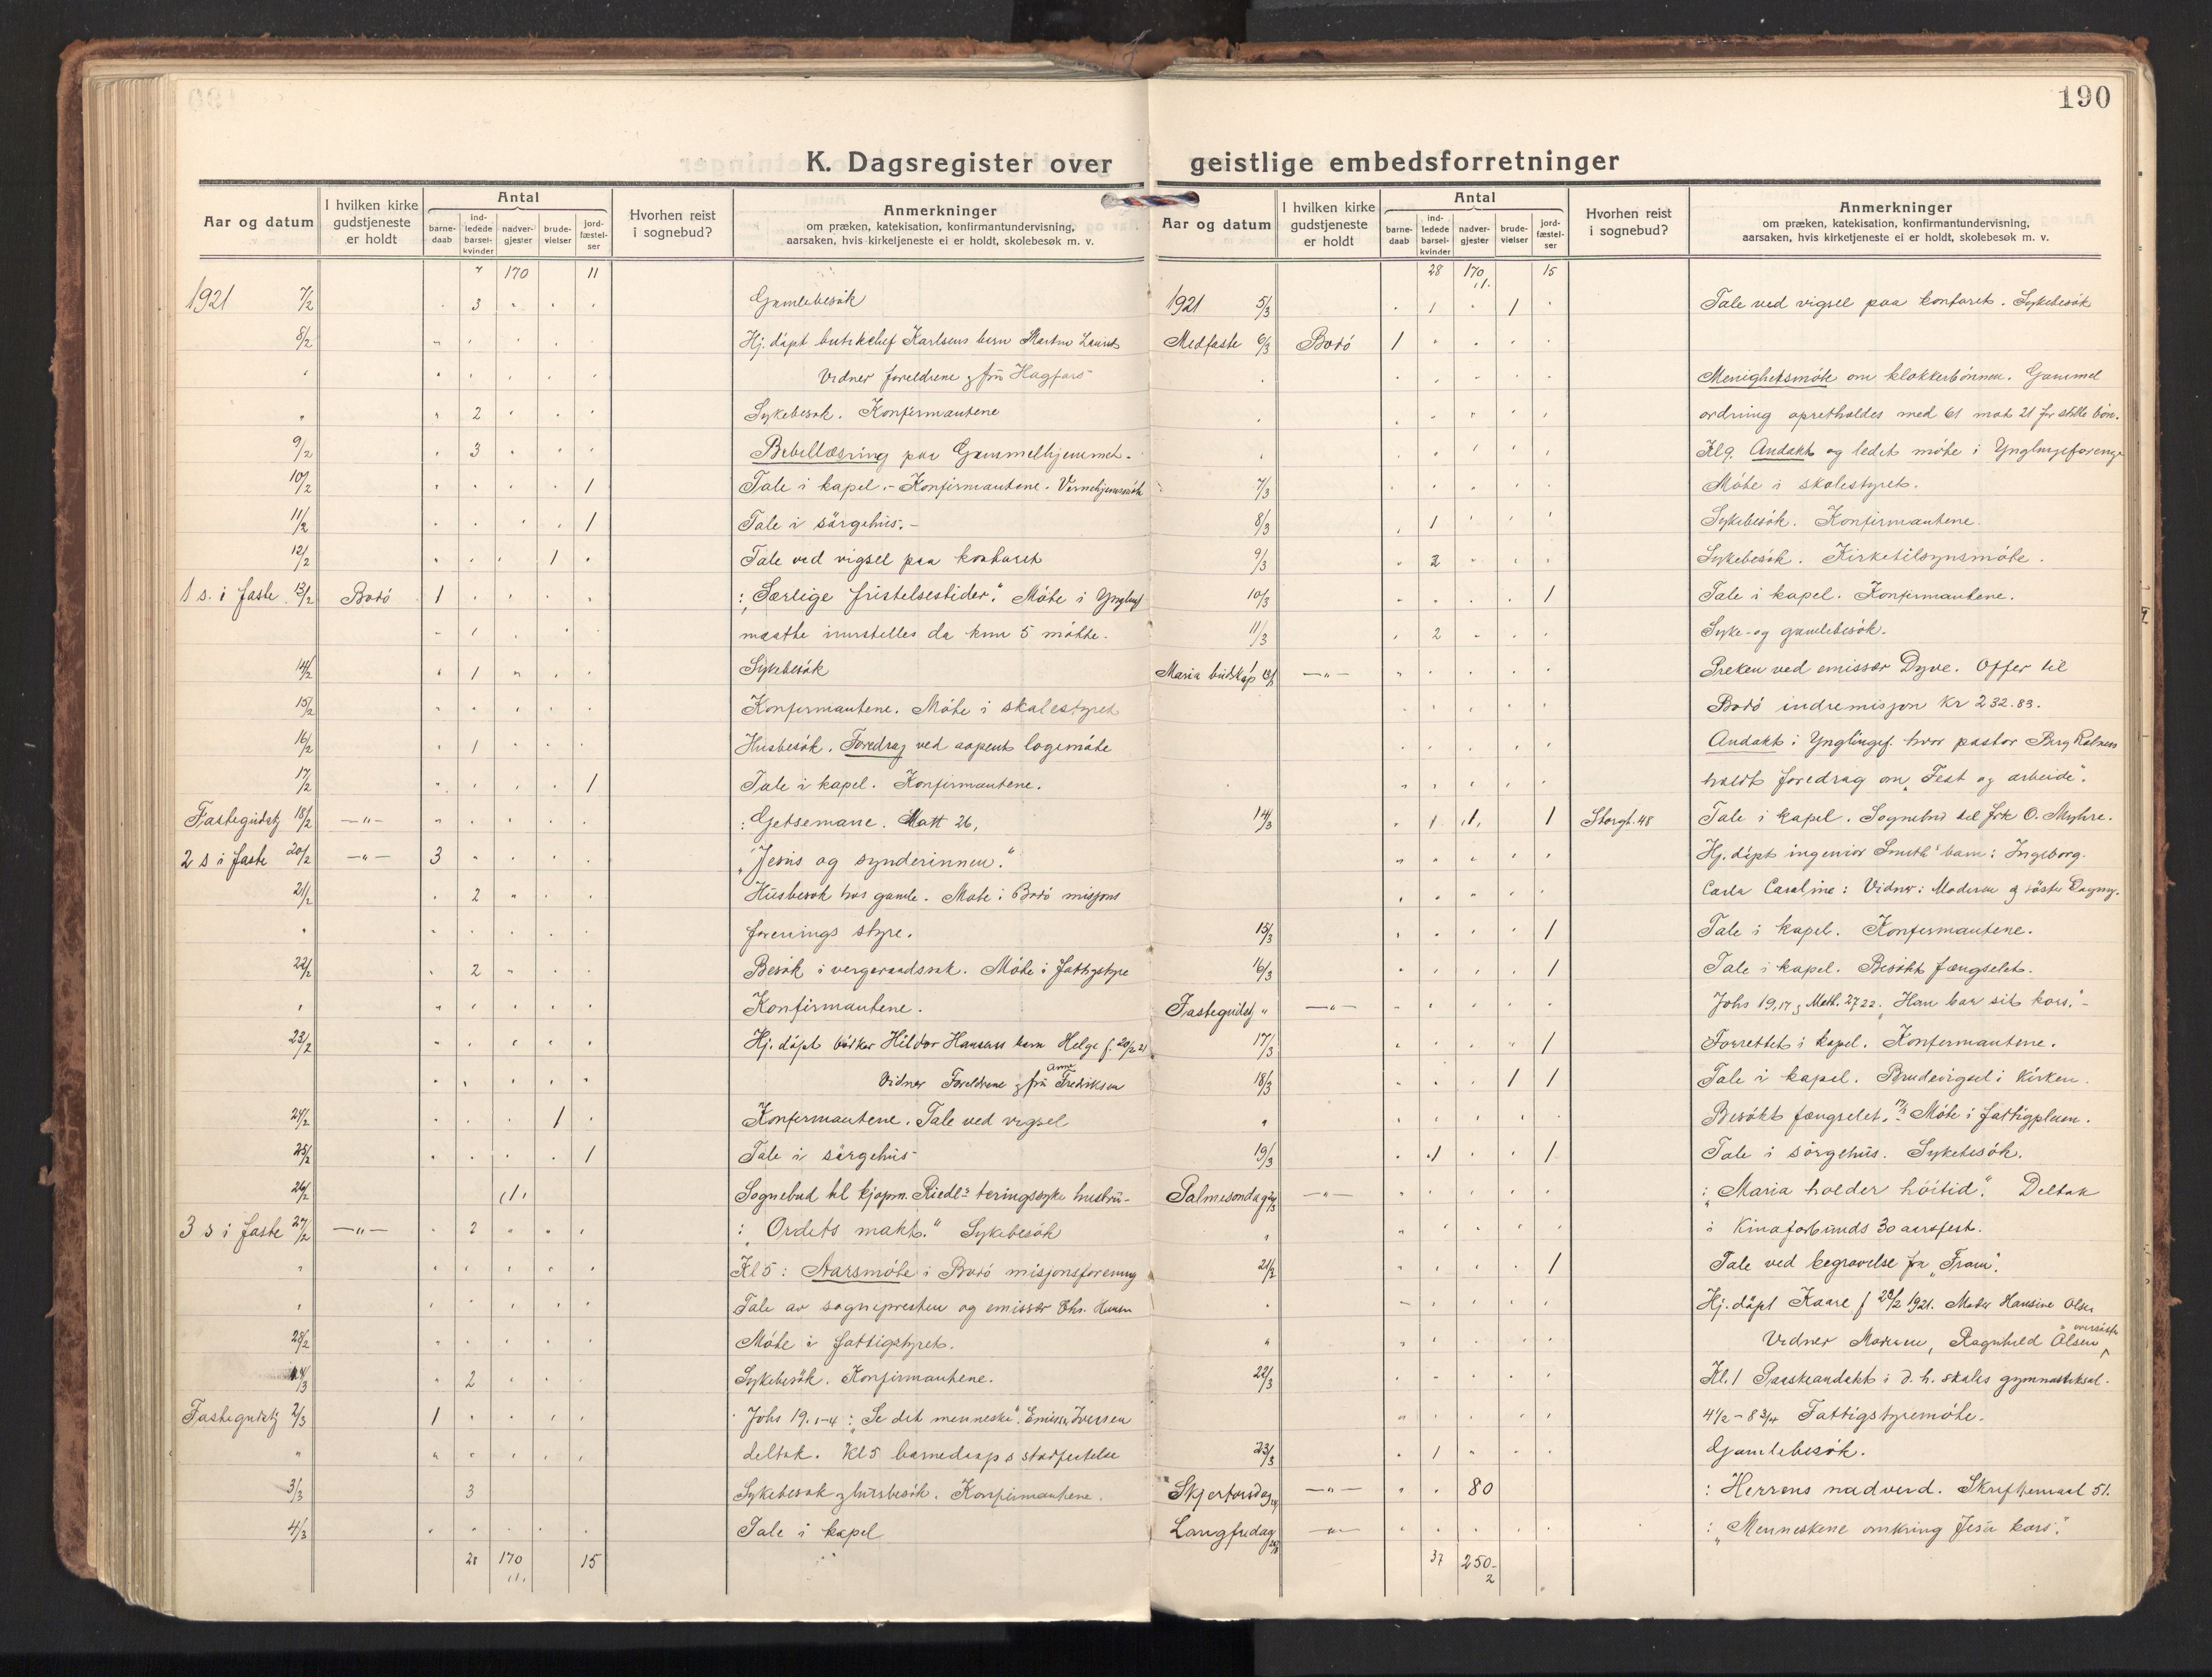 190
K. Dagsregister over
Aar og datum
I hvilken kirke gudstjeneste er holdt
Antal
barne-daab
ind-ledede barsel-kvinder
nadver-gjester
brude-vielser
jord-fæstel-ser
Hvorhen reist i sognebud?
Anmerkninger
om præken, katekisation, konfirmantundervisning,
aarsaken, hvis kirketjeneste ei er holdt, skolebesøk m. v.
170 11
1921 7/2 3 Gamlebesøk
8/2 Hj. døpt butikchef Karlsens barn Martin
Vidner foreldrene og fru Hagfors
2 Sykebesøk. Konfirmantene
9/2 3 Bibellæsning paa Gammelhjemmet.
10/2 1 Tale i kapel. - Konfirmantene.
11/2 1 Tale i sørgehus. -
12/2 1 Tale ved vigsel paa kontoret
1 s. i faste 13/2 Bodö 1 : „Særlige fristelsestider." Møte i
1 maatte innstilles da kun 5 møtte.
14/2 1 Sykebesøk
15/2 Konfirmantene. Møte i skolestyret
16/2 1 Husbesøk. Foredrag ved aapent logemøte
17/2 1 Tale i kapel. Konfirmantene.
Fastegudstj 18/2 —"— : Getsemane. Matt 26,
2 s i faste 20/2 —"— 3 „Jesus og synderinnen."
21/2 2 Husbesøk hos gamle. Møte i Bodö misjons
forenings styre.
22/2 2 Besøk i vergeraadssak. Møte i fattigstyre
Konfirmantene.
23/2 Hj. døpt Hildor Hansens barn Helge f. 20/2 21
Vidner Foreldrene og fru Anna Fredriksen
24/2 1 Konfirmantene. Tale ved vigsel
25/2 1 Tale i sørgehus
26/2 ,1, Sognebud til kjøpm. Riedls tæringssyke hustru -
3 s i faste 27/2 —"— 2 : „Ordets makt." Sykebesøk
Kl 5: Aarsmøte i Bodö misjonsforening
Tale av sognepresten og emissær Chr. Hansen
28/2 Møte i fattigstyret.
1/3 2 Sykebesøk. Konfirmantene.
Fastegudstj 2/3 1 Johs 19. 1-4: „Se det menneske". Emissær Iversen
deltok. Kl 5 barnedaaps stadfestelse
3/3 3 Sykebesøk og husbesøk. Konfirmantene.
4/3 Tale i kapel
28 170 15
,1,
geistlige embedsforretninger
Aar og datum
I hvilken kirke gudstjeneste er holdt
Antal
barne-daab
ind-ledede barsel-kvinder
nadver-gjester
brude-vielser
jord-fæstel-ser
Hvorhen reist i sognebud?
Anmerkninger
om præken, katekisation, konfirmantundervisning,
aarsaken, hvis kirketjeneste ei er holdt, skolebesøk m. v.
28 170 15
,1.
1921 5/3 1 1 Tale ved vigsel paa kontoret. Sykebesøk
Medfaste 6/3 Bodö 1
Menighetsmøte om klokkerbønnen. Gammel
ordning opretholdes med 61 mot 21 for stille bön.
Kl 9. Andakt og ledet møte i Ynglingeforening
7/3 Møte i skolestyret.
8/3 1 Sykebesøk. Konfirmantene.
9/3 2 Sykebesøk. Kirketilsynsmøte.
10/3 1 Tale i kapel. Konfirmantene.
11/3 2 Syke- og gamlebesøk.
Maria budskap 13/3 —"— Preken ved emissær Dyve. Offer til
Bodö indremisjon kr 232.83.
Andakt i Ynglingef. hvor pastor Berg
holdt foredrag om „Fest og arbeide".
14/3 1 ,1, 1 Storgt. 48 Tale i kapel. Sognebud til frk O. Myhre.
Hj. døpt ingeniør Smith's barn: Ingeborg
Carla Caroline: Vidner: Moderen og söster Dagny.
15/3 1 Tale i kapel. Konfirmantene.
16/3 1 Tale i kapel. Besøkt fængselet.
Fastegudstj " —"— Johs 19,17 og Math. 27 22. „Han bar sit kors." -
17/3 1 Forrettet i kapel. Konfirmantene.
18/3 1 1 Tale i kapel. Brudevigsel i kirken.
" Besøkt fængselet. 17/3 Møte i fattigplein.
19/3 1 1 Tale i sørgehus. Sykebesøk.
Palmesondag 20/3 —"— : „Maria holder höitid". Deltok
i Kinaforbunds 30 aarsfest.
21/3 1 Tale ved begravelse fra „Fram".
Hj. døpt Kaare f 20/2 1921. Moder Hansine Olsen
Vidner Moren, Ragnhild Olsen
22/3 Kl. 1 Paaskeandakt i d. h. skoles gymnastiksal.
4 1/2 - 8 3/4 Fattigstyremøte.
23/3 1 Gamlebesøk.
Skjertorsdag 24/3 —"— 80 : Herrens nadverd. Skriftemaal 51.
Langfredag 25/3 —"— : „Menneskene omkring Jesu kors".
37 250
2